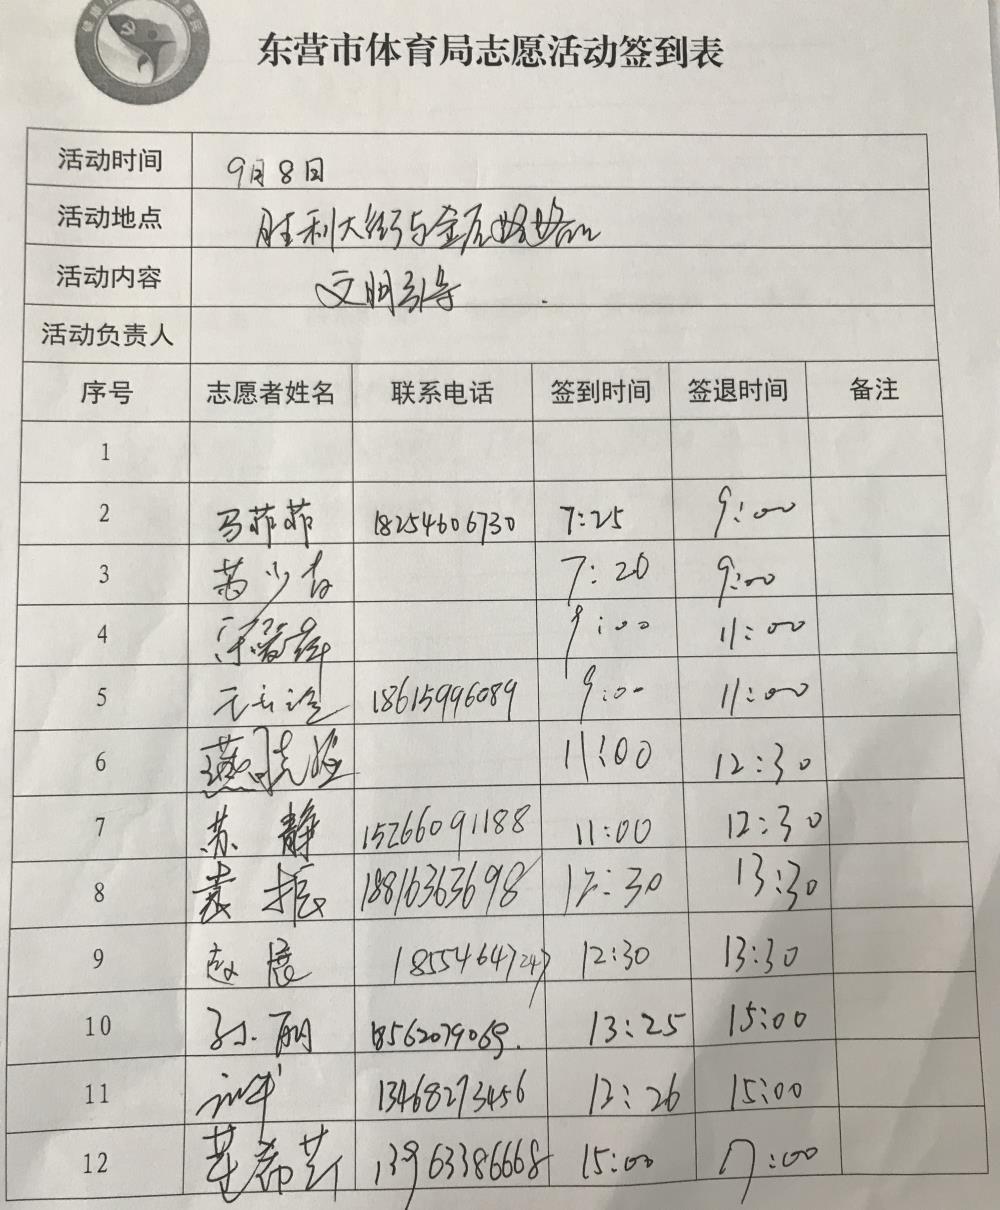 东营市体育局志愿活动签到表
活动时间 9月8日
活动地点 胜利大街与金辰路路口
活动内容 文明引导
活动负责人
序号 志愿者姓名 联系电话 签到时间 签退时间 备注
1
2 马菲菲 18254606730 7:25 9:00
3 7:20 9:00
4 9:00 11:00
5 18615996089 9:00 11:00
6 11:00 12:30
7 苏静 15266091188 11:00 12:30
8 袁振 18816363698 12:30 13:30
9 赵晨 18554647247 12:30 13:30
10 孙丽 1856207906 13:25 15:00
11 13468273456 13:26 15:00
12 13963386668 15:00 17:00